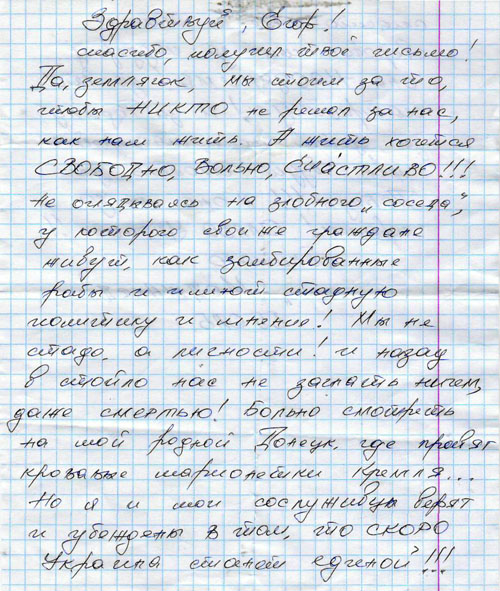 Здравствуй, Егор!
спасибо, получил твоё письмо!
Да, земляк, мы стоим за то,
чтобы НИКТО не решал за нас,
как нам жить. А жить хочется
СВОБОДНО, ВОЛЬНО, СЧАСТЛИВО!!!
Не оглядываясь на злобного „соседа",
у которого свои же граждане
живут, как зомбированные
рабы и имеют стадную
политику и мнение! Мы не
стадо, а личности! и назад
в стойло нас не загнать ничем,
даже смертью! Больно смотреть
на мой родной Донецк, где правят
кровавые марионетки Кремля...
Но я и мои сослуживцы верят
и убеждены в том, что СКОРО
Украина станет единой!!!